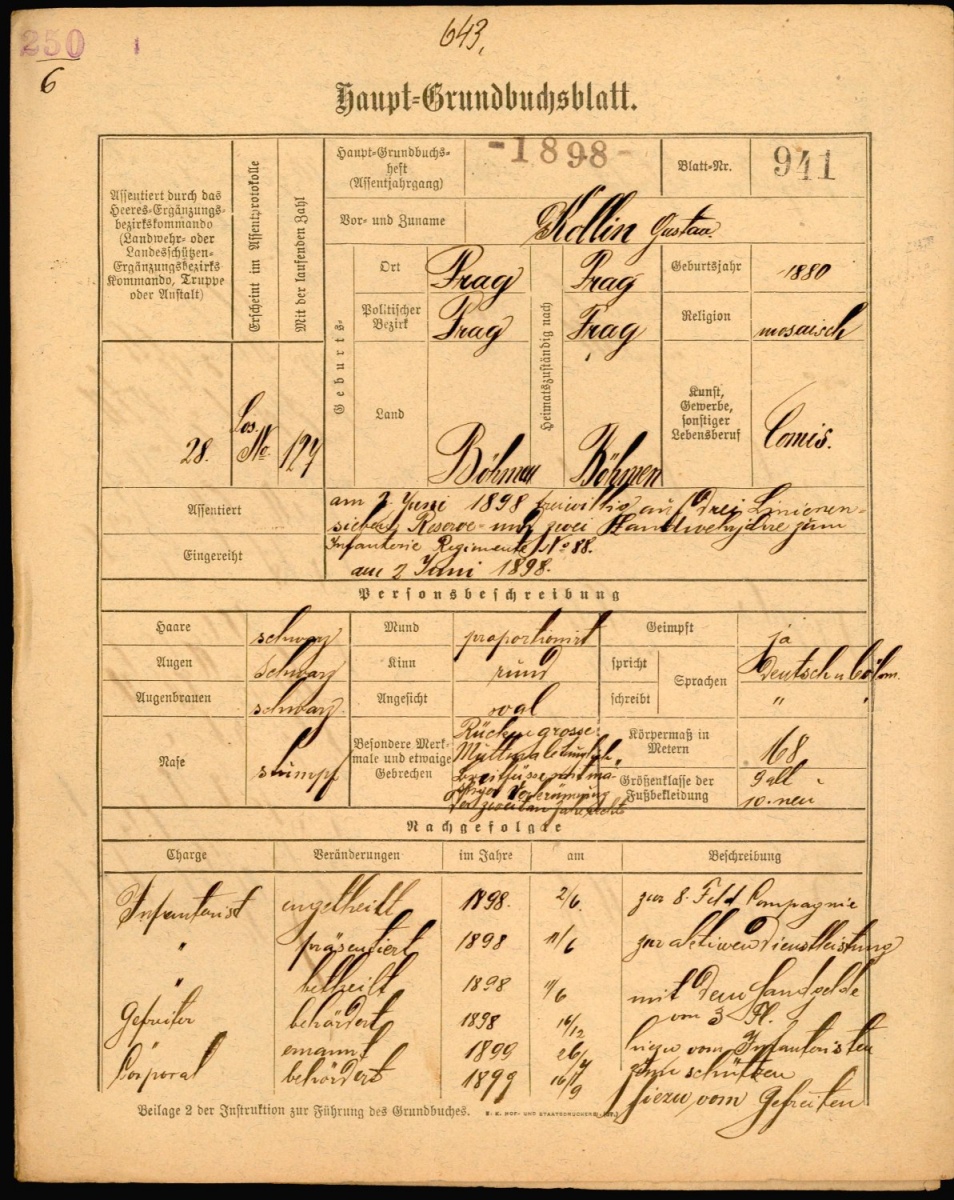 250
6
643,
Haupt-Grundbuchsblatt.
Assentiert durch das
Heeres-Ergänzungs-
bezirkskommando
(Landwehr- oder
Landesschützen-
Ergänzungsbezirks
Kommando, Truppe
oder Anstalt)
Erscheint im Assentprotokolle
Mit der laufenden Zahl
Haupt-Grundbuchs-
heft
(Assentjahrgang)
-1898-
Blatt-Nr.
941
Vor- und Zuname
Gustav
Geburts-
Ort
Prag
Heimatszuständig nach
Prag
Geburtsjahr
1880
Politischer
Bezirk
Prag
Prag
Religion
mosaisch
Land
Böhmen
Böhmen
Kunst,
Gewerbe,
sonstiger
Lebensberuf
Comis.
28.
Los.
No.
127
Assentiert
am 2 Juni 1898 freiwillig auf drei Linien-
sieben Reserve- und zwei Landwehrjahre zum
Infanterie Regimente No 88.
Eingereiht
am 2 Juni 1898.
Personsbeschreibung
Haare
schwarz
Mund
proportionirt
Geimpft
ja
Augen
schwarz
Kinn
rund
spricht
Sprachen
Deutsch u. böhm.
Augenbrauen
schwarz
Angesicht
oval
schreibt
" "
Nase
stumpf
Besondere Merk-
male und etwaige
Gebrechen
Rücken grosse
Körpermaß in
Metern
168
Größenklasse der
Fußbekleidung
9 alt
10. neu
Nachgefolgte
Charge
Veränderungen
im Jahre
am
Beschreibung
Infanterist
engetheilt
1898.
2/6.
zur 8. Feld Compagnie
"
präsentiert
1898
11/6
zur aktiven Dienstleistung
"
betheilt
1898
11/6
mit dem Handgelde
von 3 Fl.
Gefreiter
behördert
1898
16/12
hiezu vom Infanteristen
ernannt
1899
26/4
zum schützen
Corporal
behördert
1899
16/9
hiezu vom Gefreiten
Beilage 2 der Instruktion zur Führung des Grundbuches.
K. K. HOF- UND STAATSDRUCKEREI